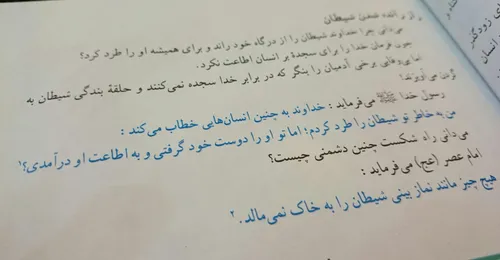 راز رانده شدن شیطان
می‌دانی چرا خداوند شیطان را از درگاه خود راند و برای همیشه او را طرد کرد؟
چون فرمان خدا را برای سجدهٔ بر انسان اطاعت نکرد.
اما بی‌وفایی برخی آدمیان را بنگر که در برابر خدا سجده نمی‌کنند و حلقهٔ بندگی شیطان به
گردن می‌آویزند!
رسول خدا ﷺ می‌فرماید: خداوند به چنین انسان‌هایی خطاب می‌کند:
من به خاطر تو شیطان را طرد کردم؛ اما تو او را دوست خود گرفتی و به اطاعت او درآمدی؟۱
می‌دانی راه شکست چنین دشمنی چیست؟
امام عصر (عج) می‌فرماید:
هیچ چیز مانند نماز بینی شیطان را به خاک نمی‌مالد.۲
ی زودگذر
انسان